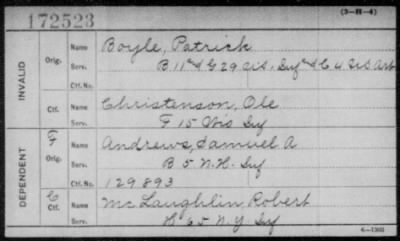 172523
(3-H-4)
INVALID
Orig.
Name Boyle, Patrick
Serv. B 11" & G 29 U.S. Inf & C 4 U.S. Art
Ctf. No.
Ctf.
Name Christenson, Ole
Serv. F 15 Wis Inf
DEPENDENT
F
Orig.
Name Andrews, Samuel A
Serv. B 5 N.H. Inf
Ctf. No. 129893
C
Ctf.
Name McLaughlin, Robert
Serv. H 65 N.Y Inf